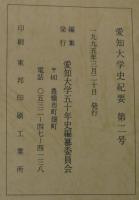 愛知大学史紀要 第二号
一九九五年三月二十日 発行
編集
発行 愛知大学五十年史編纂委員会
〒441 豊橋市町畑町
電話 〇五三二-四七-四一三八
印刷 東邦印刷工業所